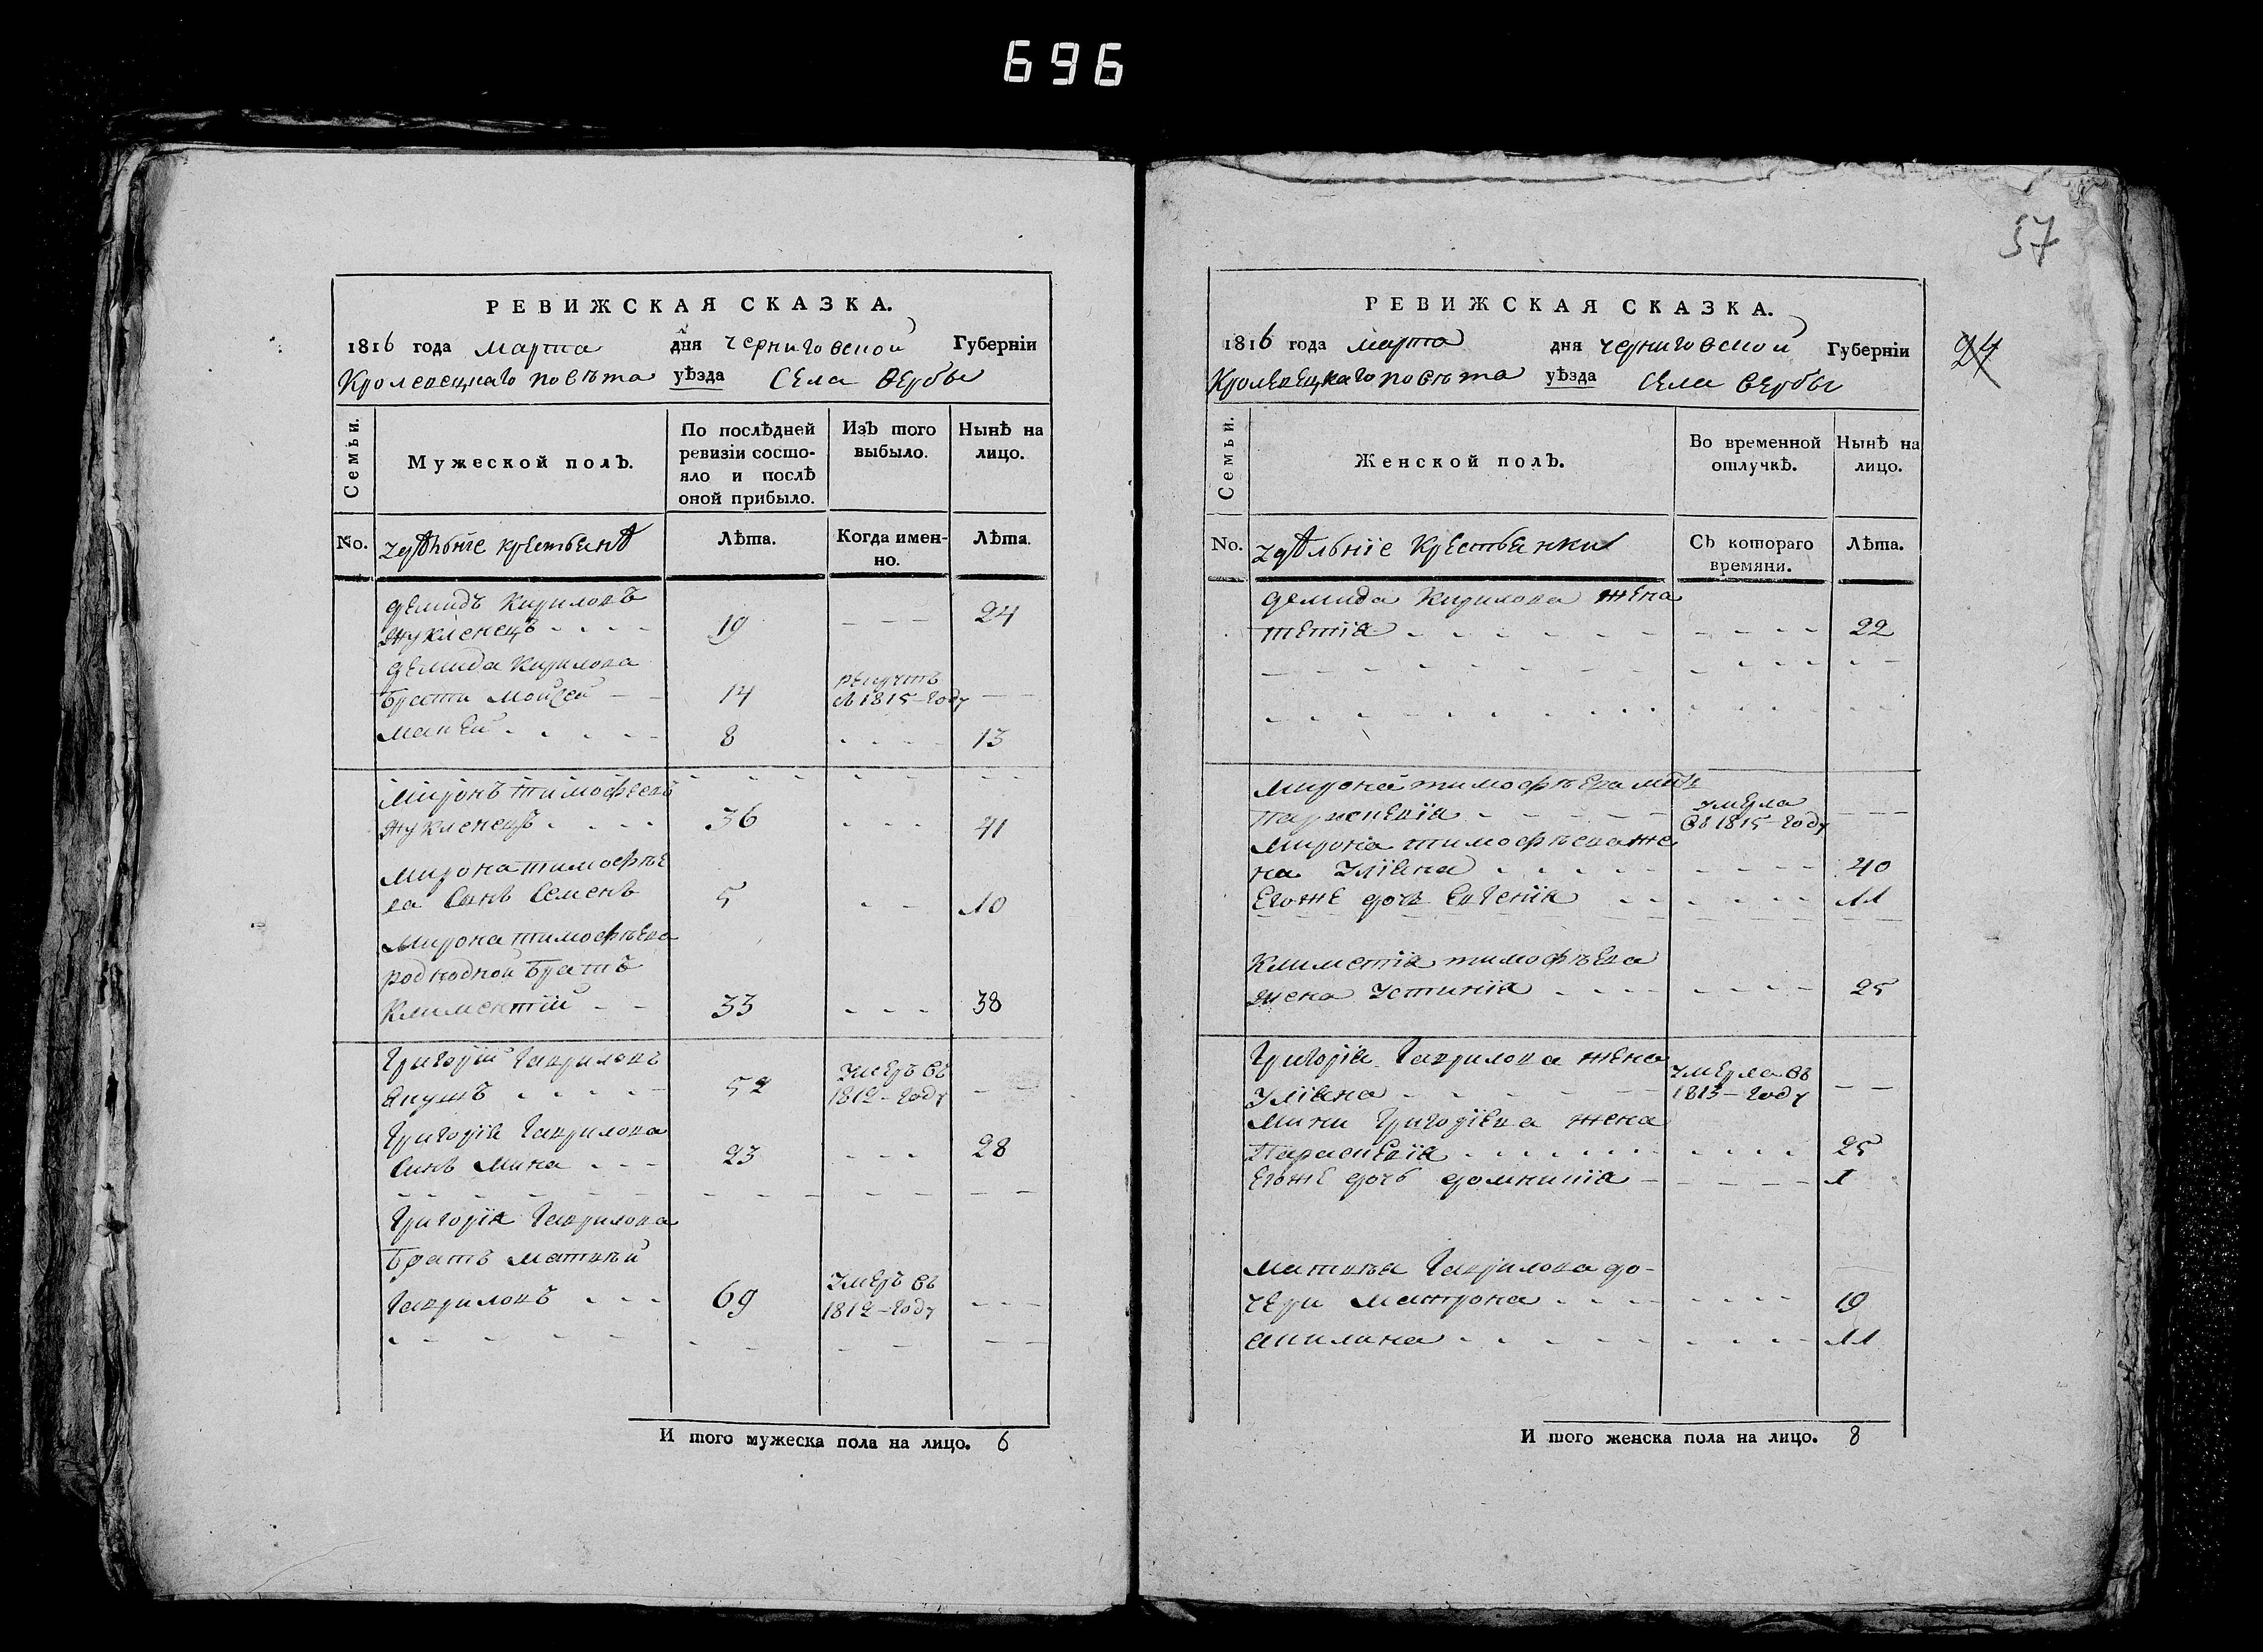 696
РЕВИЖСКАЯ СКАЗКА.
1816 года марта дня черниговской Губерніи
Кролевецкаго повѣта уѣзда Села Вербы
Семьи.
Мужеской полъ.
По послѣдней ревизіи состо-
яло и послѣ
оной прибыло.
Изъ того
выбыло.
Нынѣ на
лицо.
No.
удѣльніе крестьянѣ
Лѣта.
Когда имен-
но.
Лѣта.
демидъ Кириловъ
жукленецъ 19 24
демида Кирилова
брати Мойсей 14 рекрутъ въ 1815-году
Макей 8 13
Миронъ тимофеевъ
жукленецъ 36 41
Мирона тимофѣе
ва Синъ Семенъ 5 10
Мирона тимофѣева
родной братъ
Климентій 33 38
Григорій Гавриловъ
Якушъ 52 умеръ въ 1812-году
Григорія Гаврилова
Синъ Мина 23 28
Григорія Гаврилова
братъ матвѣй
Гавриловъ 69 умеръ въ 1812-году
И того мужеска пола на лицо. 6
57
24
РЕВИЖСКАЯ СКАЗКА.
1816 года марта дня черниговской Губерніи
Кролевецкаго повѣта уѣзда Села Вербы
Семьи.
Женской полъ.
Во временной
отлучкѣ.
Нынѣ на
лицо.
No.
удѣльніе Крестьянки
Съ котораго
времяни.
Лѣта.
демида Кирилова жена
22
Мирона тимофѣева мать
параскевія умерла въ 1815-году
Мирона тимофѣева же
на Уліяна 40
Егоже дочь Евгенія 11
Климетія тимофѣева
жена Устинія 25
Григорія Гаврилова жена
Уліяна умерла въ 1813-году
Мини Григоріева жена
Параскевія 25
Егоже дочь домникія 1
матвѣя Гаврилова до-
чери Матрона 19
акилина 11
И того женска пола на лицо. 8